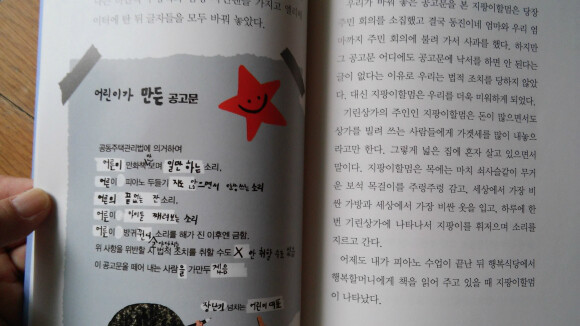 이터에 한 뒤 글자들을 모두 바꿔 놓았다.
어린이가 만든 공고문
공동주택관리법에 의거하여
어른이 만화책 보며 일만 하는 소리,
어른이 피아노 두들기
어른의 끝없는 잔소리,
어른이 아이들 때려보는 소리
어른이 방귀 뀐 소리를 해가 진 이후엔 금함.
위 사항을 위반할 시 법적 조치를 취할 수도 X 안 취할 수도 있음
이 공고문을 떼어 내는 사람을 가만두
장난기 넘치는 어린이 대표
우리가 바꿔 놓은 공고문을 본 지팡이할멈은 당장
주민 회의를 소집했고 결국 동진이네 엄마와 우리 엄
마까지 주민 회의에 불려 가서 사과를 했다. 하지만
그 공고문 어디에도 공고문에 낙서를 하면 안 된다는
글이 없다는 이유로 우리는 법적 조치를 당하지 않았
다. 대신 지팡이할멈은 우리를 더욱 미워하게 되었다.
기린상가의 주인인 지팡이할멈은 돈이 많으면서도
상가를 빌려 쓰는 사람들에게 가겟세를 많이 내놓으
라고만 한다. 그렇게 넓은 집에 혼자 살고 있으면서
말이다. 지팡이할멈은 목에는 마치 쇠사슬같이 무거
운 보석 목걸이를 주렁주렁 감고, 세상에서 가장 비
싼 가방과 세상에서 가장 비싼 옷을 입고, 하루에 한
번 기린상가에 나타나서 지팡이를 휘저으며 소리를
지르고 간다.
어제도 내가 피아노 수업이 끝난 뒤 행복식당에서
행복할머니에게 책을 읽어 주고 있을 때 지팡이할멈
이 나타났다.